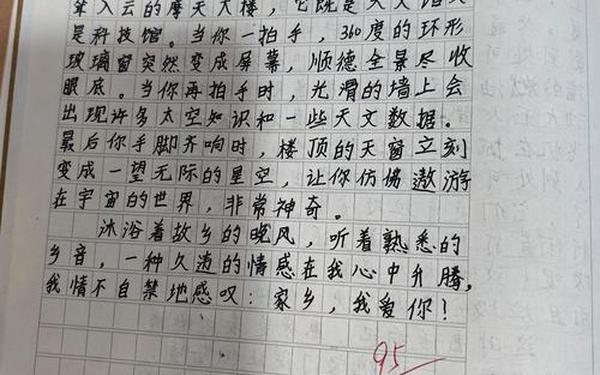 耸入云的摩天大楼，它既是天文馆又
是科技馆。当你一拍手，360度的环形
玻璃窗突然变成屏幕，顺德全景尽收
眼底。当你再拍手时，光滑的墙上会
出现许多太空知识和一些天文数据。
最后你手脚齐响时，楼顶的天窗立刻
变成一望无际的星空，让你仿佛遨游
在宇宙的世界，非常神奇。
沐浴着故乡的晚风，听着熟悉的
乡音，一种久违的情感在我心中升腾，
我情不自禁地感叹：家乡，我爱你！
95